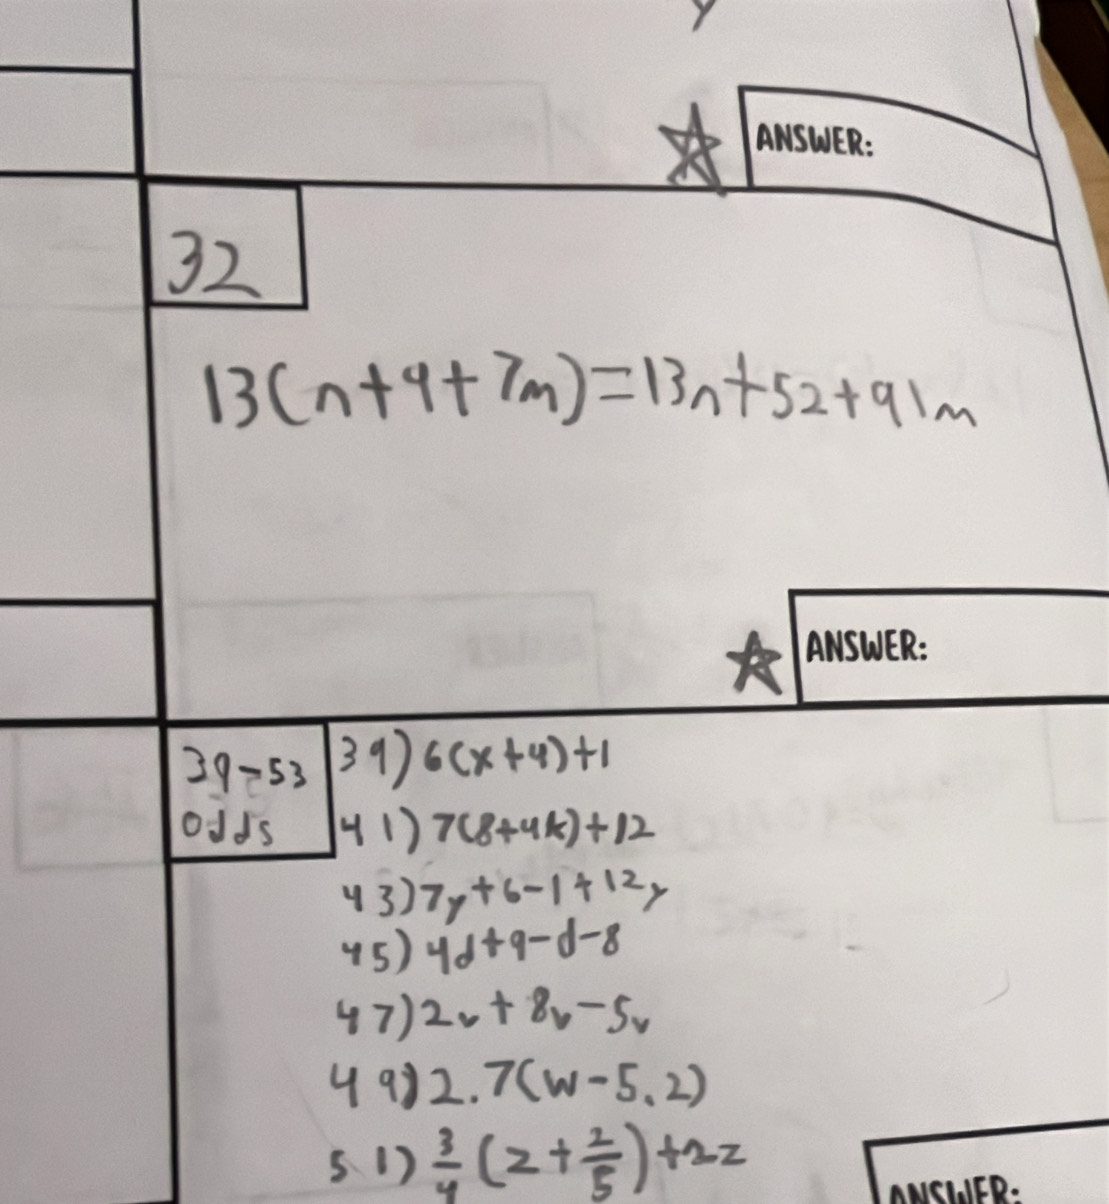 y
ANSWER:
32
13(n+4+7m)=13n+52+91m
ANSWER:
39-53
odds
39) 6(x+4)+1
41) 7(8+4k)+12
43) 7y+6-1+12y
45) 4d+9-d-8
47) 2v+8v-5v
49) 2.7(w-5.2)
51) 3/4 (z+2/5)+2z
ANSWER: